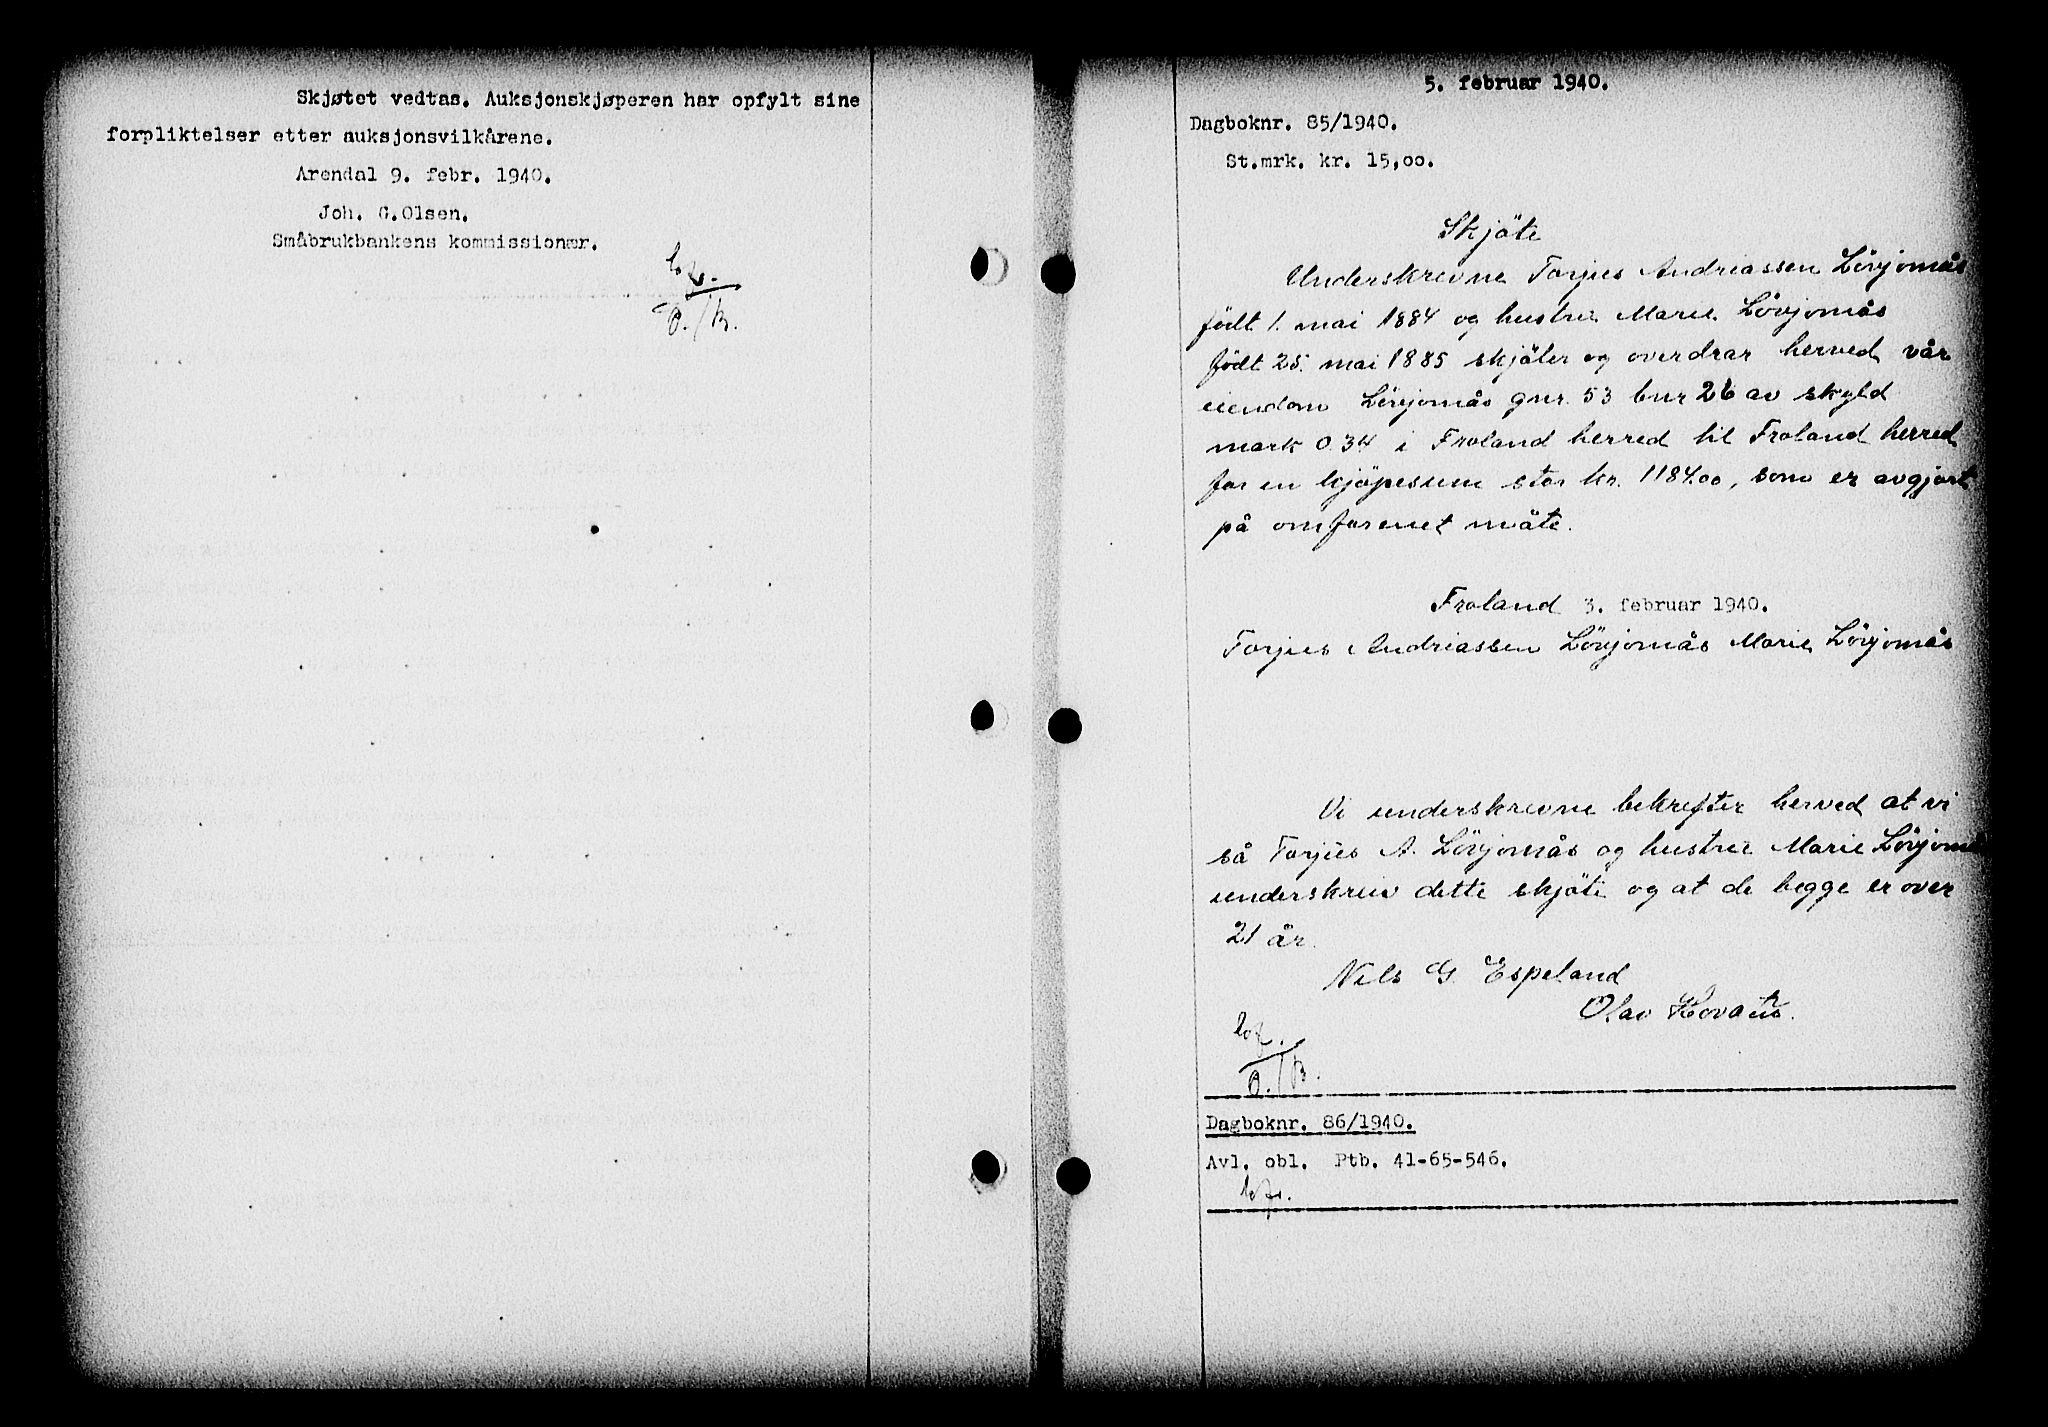 Skjøtet vedtas. Auksjonskjøperen har opfylt sine
forpliktelser etter auksjonsvilkårene.
Arendal 9. febr. 1940.
Joh. G.Olsen.
Småbrukbankens kommissionær.
5. februar 1940.
Dagboknr. 85/1940.
St.mrk. kr. 15,oo.
Skjöte
Underskrevne Torjus Andreassen Lövjomås
födt 1. mai 1884 og hustru Marie Lövjomås
födt 25. mai 1885 skjöter og overdrar herved vår
eiendom Lövjomås gnr. 53 bnr 26 av skyld
mark 0.34 i Froland herred til Froland herred
for en kjöpesum stor kr. 1184.00, som er avgjort
på omforenet måte.
Froland 3. februar 1940.
Torjus Andreassen Lövjomås Marie Lövjomås
Vi underskrevne bekrefter herved at vi
så Torjus A. Lövjomås og hustru Marie Lövjomås
underskriv dette skjöte og at de begge er over
21 år.
Nils G. Espeland
Olav
Dagboknr. 86/1940.
Avl. obl. Ptb. 41-65-546.